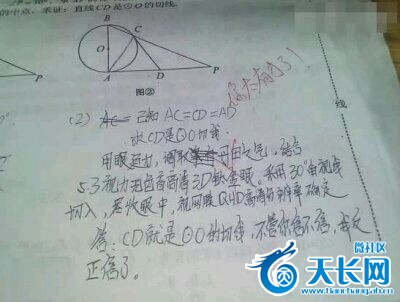 的中点，求证：直线CD是⊙O的切线.
B
C
O
A
D
P
图②
你太有才了！
线
(2) 已知 AC=CD=AD
求CD是⊙O切线.
用眼运力，调取丹田之气，结合
5.3视力和包高清3D钛金眼，采用30°角视线
切入，聚收眼中，视网膜QHD高清分辨率确定
答：CD就是⊙O的切线，不管你信不信，我反
正信了。
微社区
天长网
www.tianchangwang.cn